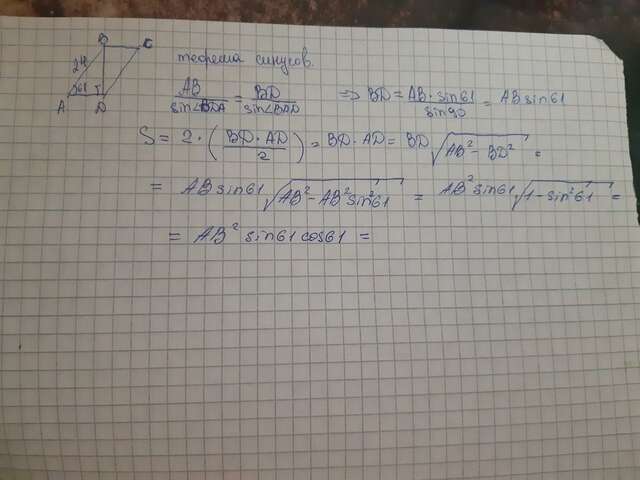 B C
24
61
A D
теорема синусов.
AB/sin∠BDA = BD/sin∠BAD => BD = AB·sin61/sin90 = ABsin61
S = 2·(BD·AD/2) = BD·AD = BD√(AB²-BD²) =
= ABsin61√(AB²-AB²sin²61) = AB²sin61√(1-sin²61) =
= AB² sin61 cos61 =